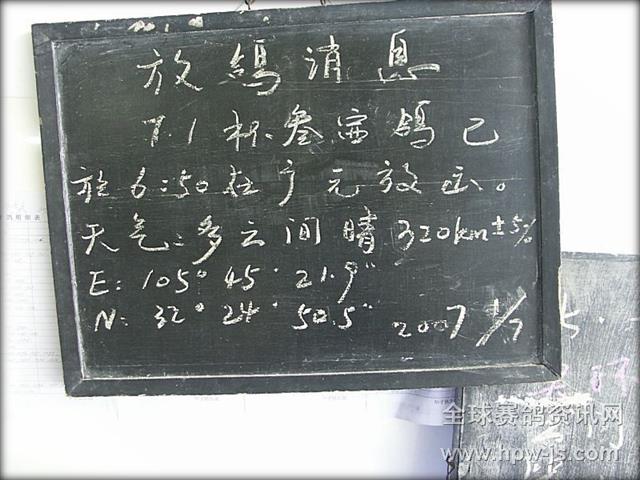 放鸽消息
7.1杯参赛鸽已
于6:50在广元放出。
天气:多云间晴 320km±5%
E: 105° 45' 21.9"
N: 32° 24' 50.5" 2007 1/7
全球赛鸽资讯网
www.hpw-js.com